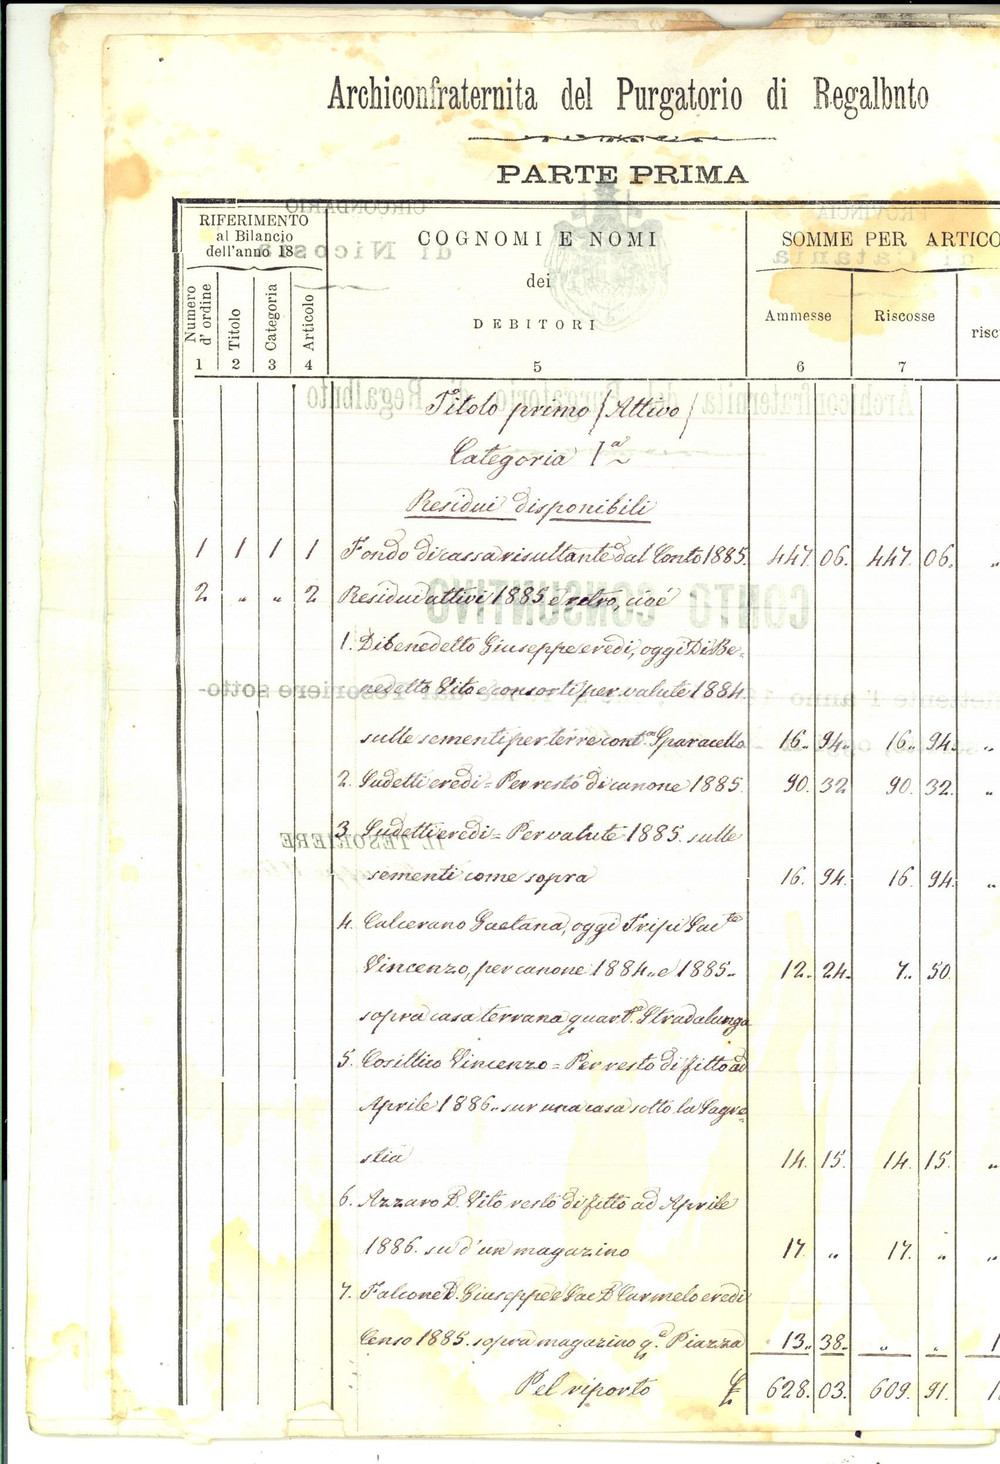 Archiconfraternita del Purgatorio di Regalbnto
PARTE PRIMA
RIFERIMENTO
al Bilancio
dell'anno 18
COGNOMI E NOMI
dei
DEBITORI
SOMME PER ARTICO
Numero d'ordine
Titolo
Categoria
Articolo
Ammesse
Riscosse
risc
1 2 3 4 5 6 7
Titolo primo (Attivo)
Categoria Iª
Residui disponibili
1 1 1 1 Fondo di cassa risultante dal Conto 1885. 447. 06. 447. 06. "
2 " " 2 Residui attivi 1885 e retro, cioè
1. Dibenedetto Giuseppe eredi, oggi Di Be-
nedetto Vito e consorti per valute 1884.
sulle sementi per terre contª Sparacello 16. 94. 16. 94. "
2. Sudetti eredi = Per resto di canone 1885. 90. 32 90. 32. "
3. Sudetti eredi = Per valute 1885. sulle
sementi come sopra 16. 94. 16. 94. "
4. Calcerano Gaetana, oggi Tripi Sacte
Vincenzo, per canone 1884. e 1885.
12. 24. 7. 50
sopra casa terrana quart. Stradalunga
5. Cosittico Vincenzo = Per resto di fitto ad
Aprile 1886. sur una casa sotto la Sagre-
stia 14. 15. 14. 15. "
6. Azzaro D. Vito resto di fitto ad Aprile
1886. su d'un magazino 17. " 17. " "
7. Falcone D. Giuseppe e Sac D Carmelo eredi
Censo 1885. sopra magazino q. Piazza 13. 38. " " 1
Pel riporto £ 628. 03. 609. 91. 1